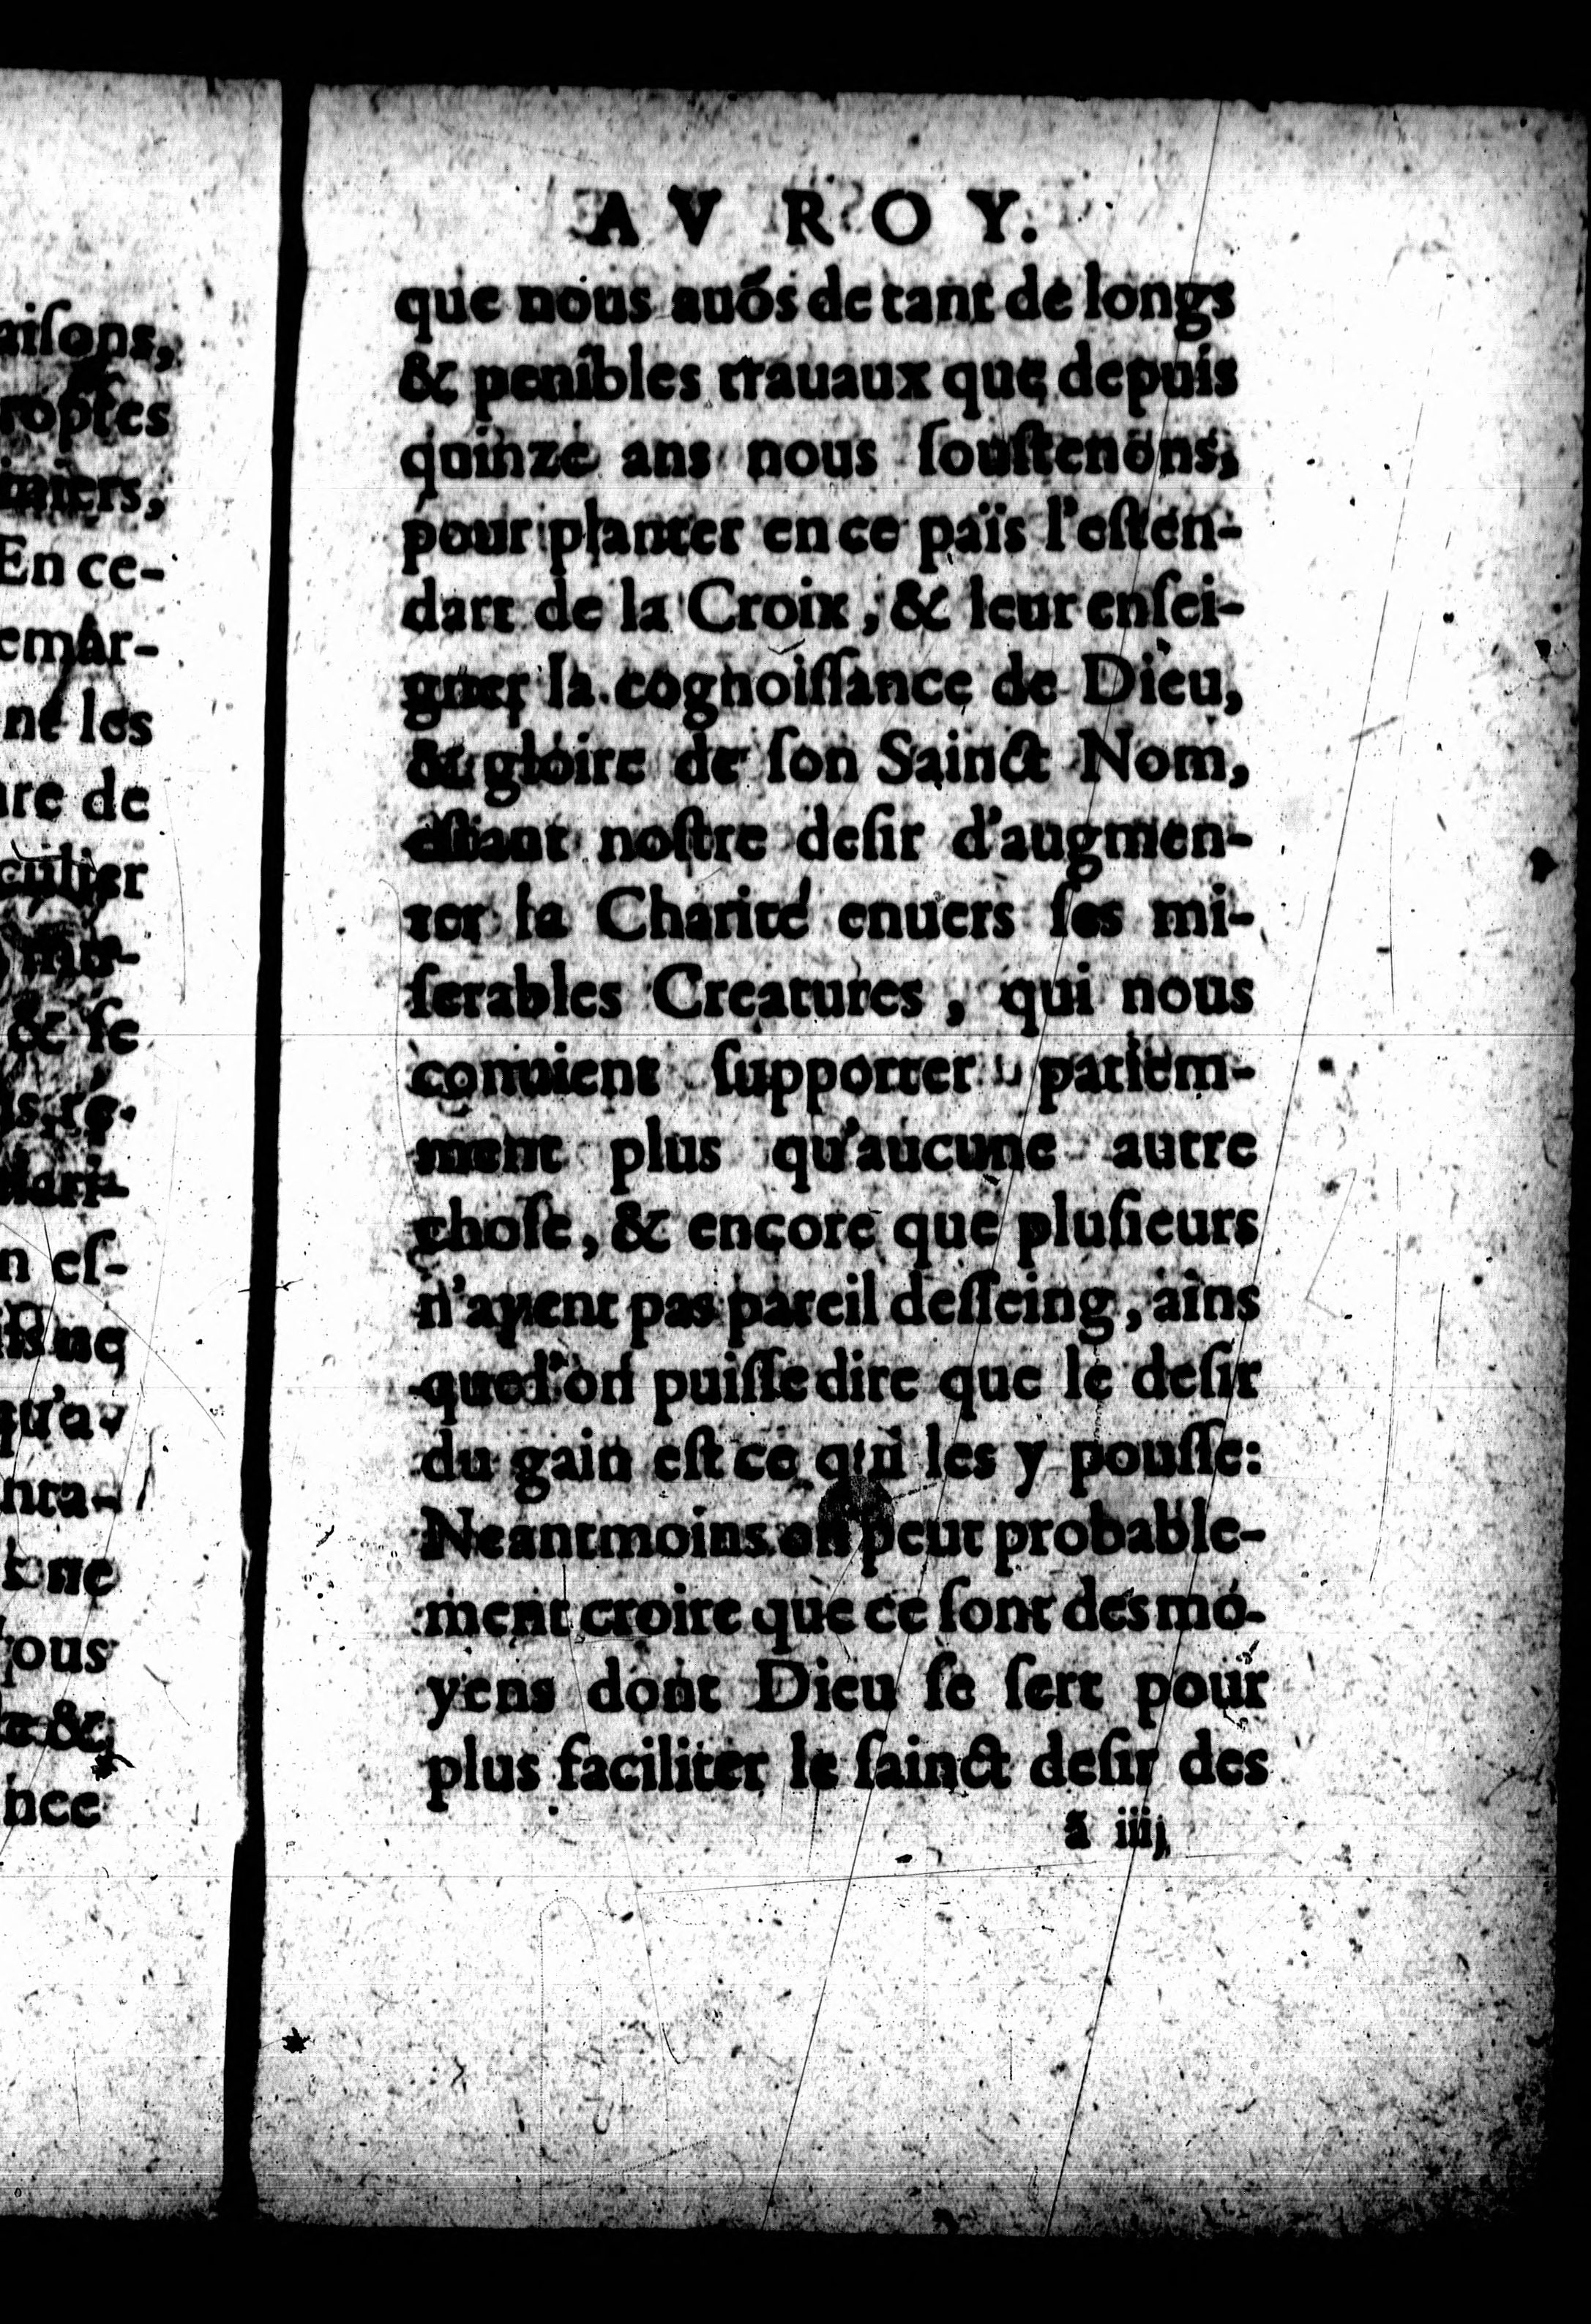 AV ROY.
que nous auõs de tant de longs
& penibles trauaux que depuis
quinze ans nous ſouſtenons,
pour planter en ce païs l'eſten-
dart de la Croix, & leur enſei-
gner la cognoiſſance de Dieu,
& gloire de ſon Sainct Nom,
eſtant noſtre deſir d'augmen-
ter la Charité enuers ſes mi-
ſerables Creatures, qui nous
conuient ſupporter patiem-
ment plus qu'aucune autre
choſe, & encore que pluſieurs
n'ayent pas pareil deſſeing, ains
que l'on puiſſe dire que le deſir
du gain eſt ce qui les y pouſſe:
Neantmoins on peut probable-
ment croire que ce ſont des mo-
yens dont Dieu ſe ſert pour
plus faciliter le ſainct deſir des
ã iiij
En ce-
les
de
& ſe
ne